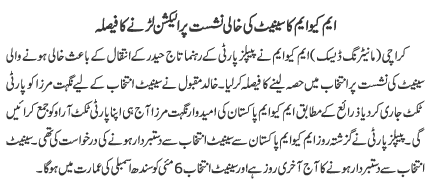 ایم کیو ایم کا سینیٹ کی خالی نشست پر الیکشن لڑنے کا فیصلہ
کراچی (مانیٹرنگ ڈیسک) ایم کیو ایم نے پیپلز پارٹی کے رہنما تاج حیدر کے انتقال کے باعث خالی ہونے والی
سینیٹ کی نشست پر انتخاب میں حصہ لینے کا فیصلہ کر لیا۔ خالد مقبول نے سینیٹ انتخاب کے لیے نگہت مرزا کو پارٹی
ٹکٹ جاری کر دیا ذرائع کے مطابق ایم کیو ایم پاکستان کی امیدوار نگہت مرزا آج ہی اپنا پارٹی ٹکٹ آر او کو جمع کرائیں
گی۔ پیپلز پارٹی نے گزشتہ روز ایم کیو ایم پاکستان سے سینیٹ انتخاب سے دستبردار ہونے کی درخواست کی تھی۔ سینیٹ
انتخاب سے دستبردار ہونے کا آج آخری روز ہے اور سینیٹ انتخاب 6 مئی کو سندھ اسمبلی کی عمارت میں ہوگا۔